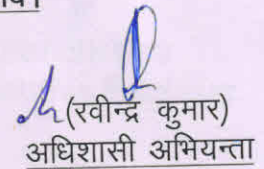 (रवीन्द्र कुमार)
अधिशासी अभियन्ता